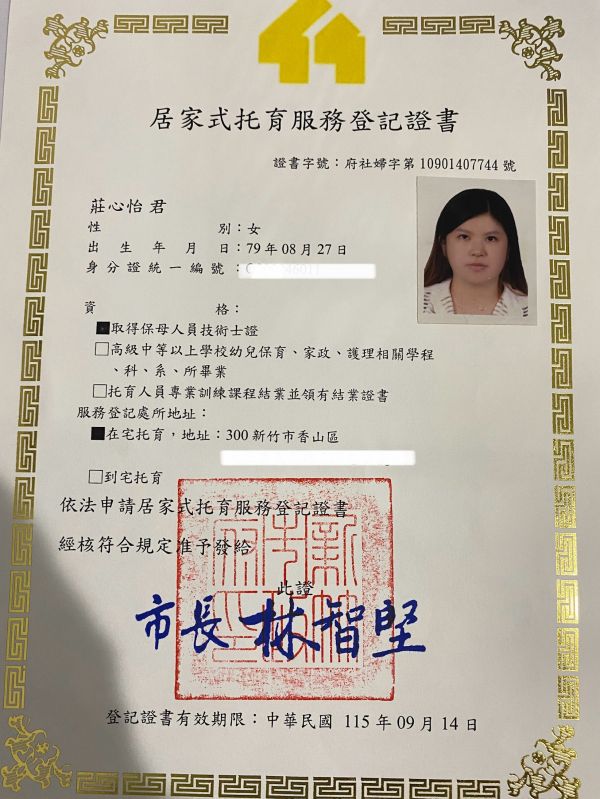 居家式托育服務登記證書
證書字號：府社婦字第 10901407744 號
莊心怡 君
性別：女
出生年月日：79 年 08 月 27 日
身分證統一編號：
資格：
■取得保母人員技術士證
□高級中等以上學校幼兒保育、家政、護理相關學程
、科、系、所畢業
□托育人員專業訓練課程結業並領有結業證書
服務登記處所地址：
■在宅托育，地址：300 新竹市香山區
□到宅托育
依法申請居家式托育服務登記證書
經核符合規定准予發給
此證
市長 林智堅
登記證書有效期限：中華民國 115 年 09 月 14 日